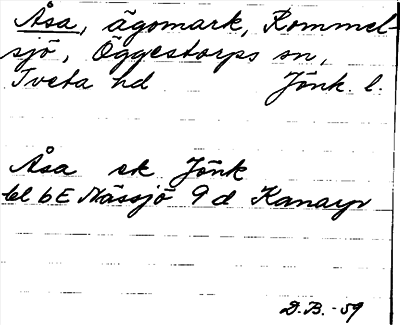 Åsa, ägomark, Rommel-
sjö, Öggestorps sn,
Tveta hd Jönk. l.
Åsa ek Jönk
bl bE Nässjö 9d Kanarp
D.B. -59